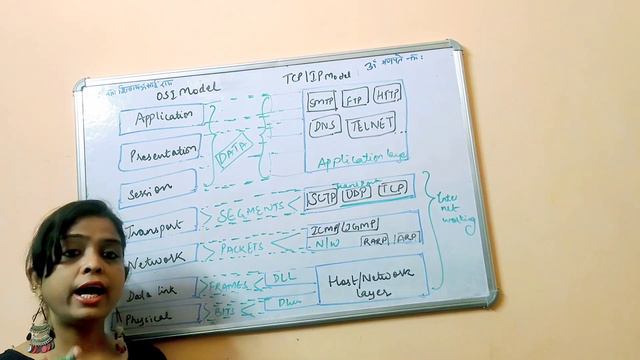 OSI Model
TCP/IP Model
Application
Presentation
Session
Transport
Network
Data link
Physical
DATA
SEGMENTS
PACKETS
FRAMES
BITS
SMTP
FTP
HTTP
DNS
TELNET
Application layer
Transport
SCTP
UDP
TCP
ICMP
IGMP
N/W
RARP
ARP
DLL
Host/Network
layer
Inte
net
working